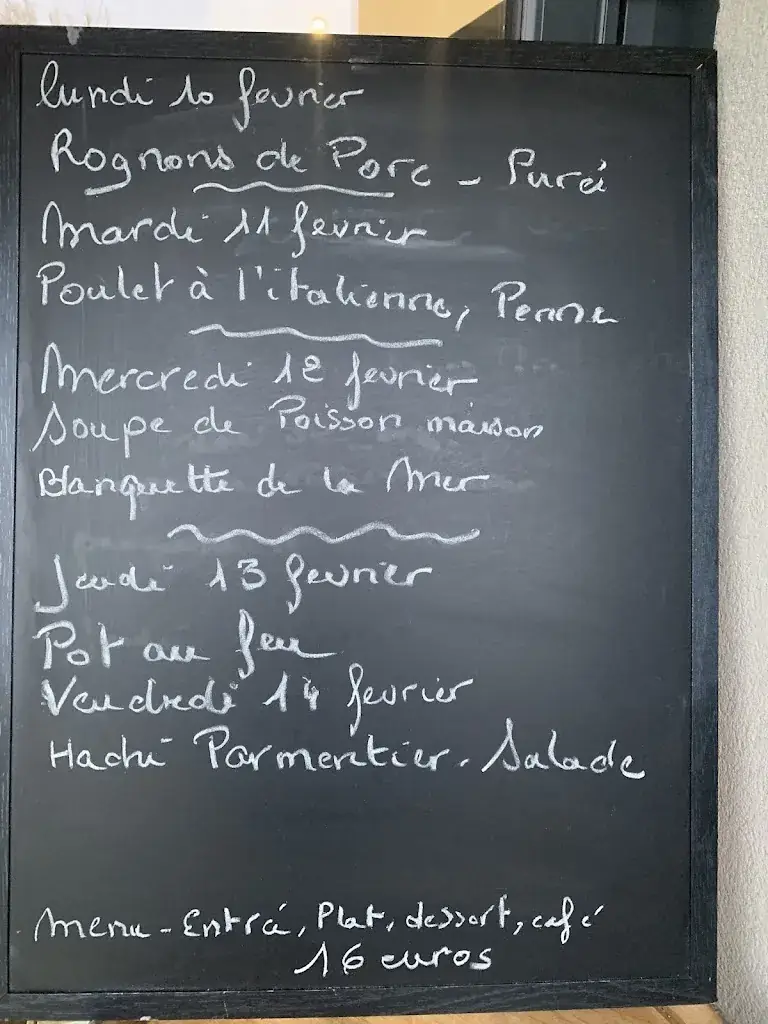 lundi 10 fevrier
Rognons de Porc - Purée
Mardi 11 fevrier
Poulet à l'italienne, Penne
Mercredi 12 fevrier
Soupe de Poisson maison
Blanquette de la Mer
Jeudi 13 fevrier
Pot au feu
Vendredi 14 fevrier
Haché Parmentier. Salade
Menu - Entrée, Plat, dessert, café
16 euros